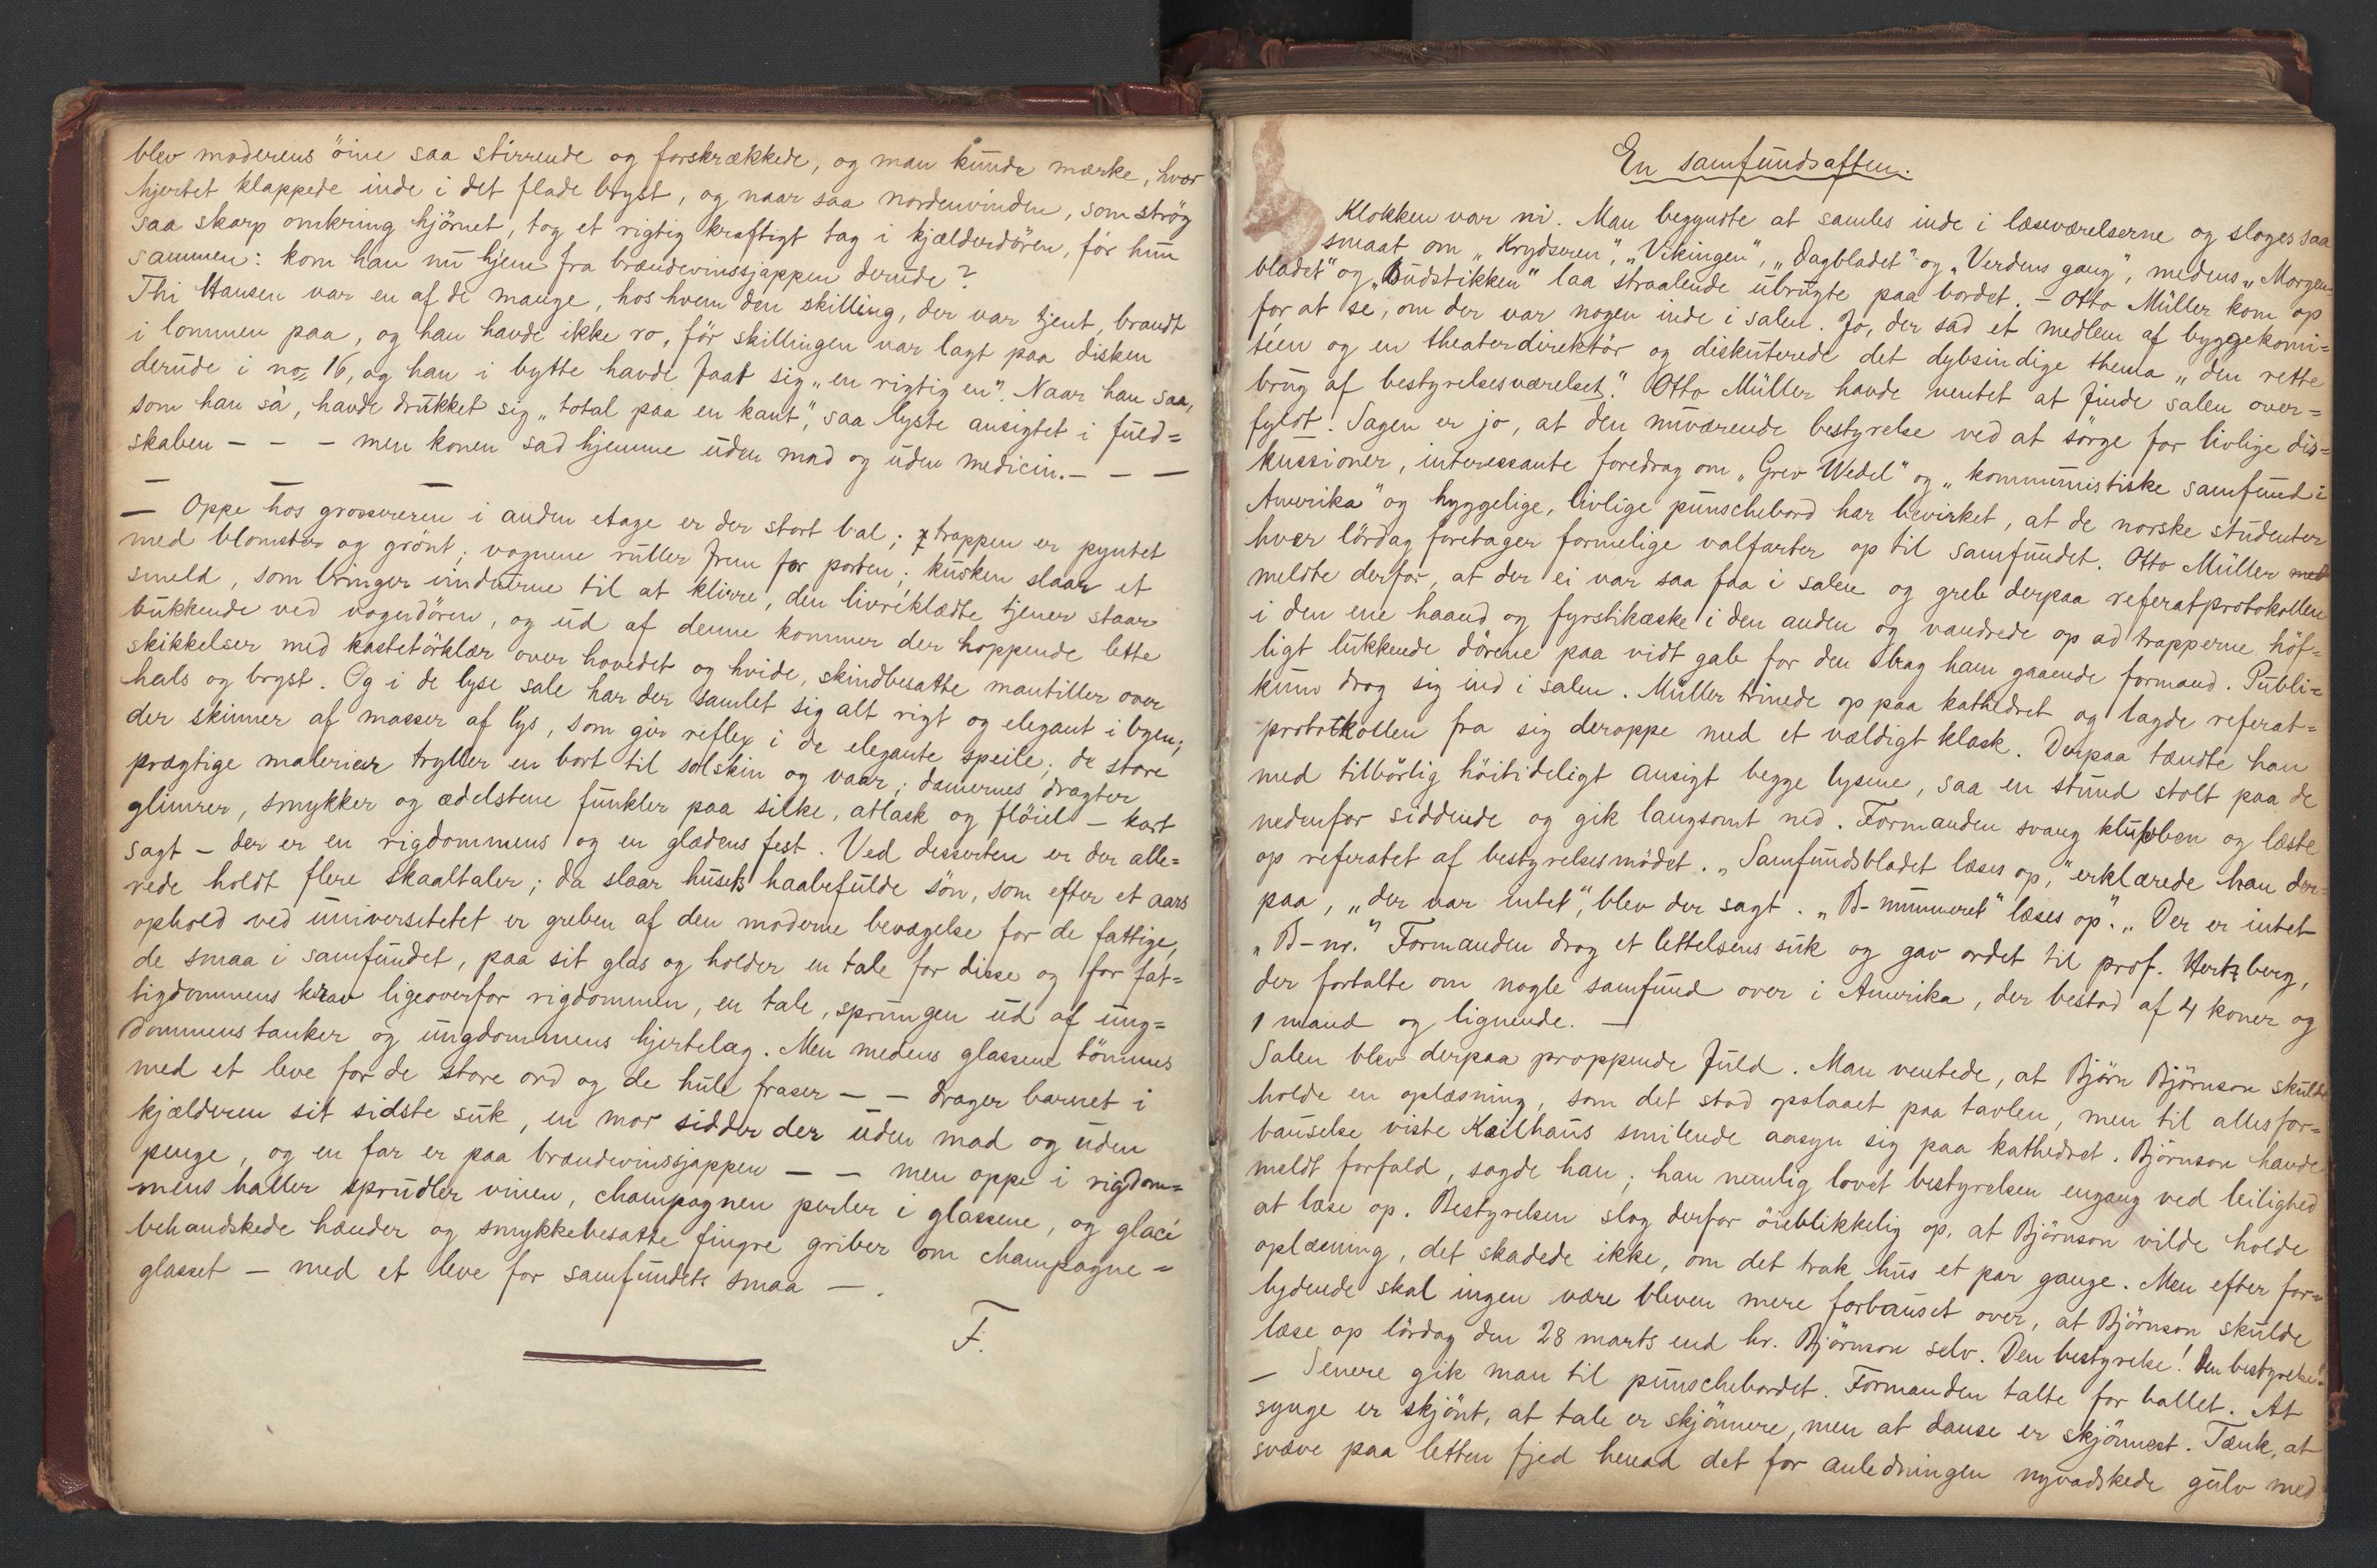 blev moderens öine saa stirrende og forskrækkede, og man kunde mærke, hvor
hjertet klappede inde i det flade bryst, og naar saa nordenvinden, som strög
saa skarp omkring hjörnet, tog et rigtig kraftigt tag i kjælderdören, för hun
sammen: kom han nu hjem fra brændevinssjappen derude?
Thi Hansen var en af de mange, hos hvem den skilling, der var tjent, brændt
i lommen paa, og han havde ikke ro, för skillingen var lagt paa disken
derude i no 16, og han i bytte havde faat sig „en rigtig en“. Naar han saa,
som han sa', havde drukket sig „total paa en kant“, saa lyste ansigtet i fuld=
skaben – – – men konen sad hjemme uden mad og uden medicin. – – –
– Oppe hos grossereren i anden etage er der stort bal; trappen er pyntet
med blomster og grönt; vognene ruller frem for porten; kusken slaar et
smeld, som bringer vinduerne til at klirre, den livréklædte tjener staar
bukkende ved vogndören, og ud af denne kommer der hoppende lette
skikkelser med kastetörklær over hovedet og hvide, skindbesatte mantiller over
hals og bryst. Og i de lyse sale har der samlet sig alt rigt og elegant i byen;
der skinner af masser af lys, som gir reflex i de elegante speile; de store
prægtige malerier tryller en bort til solskin og vaar; damernes dragter
glimrer, smykker og ædelstene funkler paa silke, atlask og flöiel – kort
sagt – der er en rigdommens og en glædens fest. Ved desserten er der alle=
rede holdt flere skaaltaler; da slaar husets haabefulde sön, som efter et aars
ophold ved universitetet er greben af den moderne bevægelse for de fattige,
de smaa i samfundet, paa sit glas og holder en tale for disse og for fat=
tigdommens krav ligeoverfor rigdommen, en tale, sprungen ud af ung=
dommens tanker og ungdommens hjertelag. Men medens glassene tömmes
med et leve for de store ord og de hule fraser – – drager barnet i
kjælderen sit sidste suk, en mor sidder der uden mad og uden
penge, og en far er paa brændevinssjappen – – men oppe i rigdom=
mens haller sprudler vinen, champagnen perler i glassene, og glacé
behandskede hænder og smykkebesatte fingre griber om champagne=
glasset – med et leve for samfundets smaa – .
F.
En samfundsaften.
Klokken var ni. Man begyndte at samles inde i læseværelserne og sloges saa
smaat om „Krydseren“, „Vikingen“, „Dagbladet“ og „Verdens gang“, medens „Morgen=
bladet“ og „Budstikken“ laa straalende ubrugte paa bordet. – Otto Müller kom op
for at se, om der var nogen inde i salen. Jo, der sad et medlem af byggekomi=
teen og en theaterdirektör og diskuterede det dybsindige thema „den rette
brug af bestyrelsesværelset“. Otto Müller havde ventet at finde salen over=
fyldt. Sagen er jo, at den nuværende bestyrelse ved at sörge for livlige dis=
kussioner, interessante foredrag om „Grev Wedel“ og „kommunistiske samfund i
Amerika“ og hyggelige, livlige punschebord har bevirket, at de norske studenter
hver lördag foretager formelige valfarter op til samfundet. Otto Müller med
meldte derfor, at der ei var saa faa i salen og greb derpaa referatprotokollen
i den ene haand og fyrstikæske i den anden og vandrede op ad trapperne höf=
ligt lukkende dörene paa vidt gab for den bag ham gaaende formand. Publi=
kum drog sig ind i salen. Müller trinede op paa kathedret og lagde referat=
protokollen fra sig deroppe med et vældigt klask. Derpaa tændte han
med tilbörlig höitideligt ansigt begge lysene, saa en stund stolt paa de
nedenfor siddende og gik langsomt ned. Formanden svang klubben og læste
op referatet af bestyrelsesmödet. „Samfundsbladet læses op,“ erklærede han der=
paa, „der var intet“, blev der sagt. „B-nummeret læses op“. „Der er intet
„B-nr.“ Formanden drog et lettelsens suk og gav ordet til prof. Hertzberg,
der fortalte om nogle samfund over i Amerika, der bestod af 4 koner og
1 mand og lignende. –
Salen blev derpaa proppende fuld. Man ventede, at Björn Björnson skulde
holde en oplæsning, som det stod opslaaet paa tavlen, men til alles for=
bauselse viste Keilhaus smilende aasyn sig paa kathedret. Björnson havde
meldt forfald, sagde han; han nemlig lovet bestyrelsen engang ved leilighed
at læse op. Bestyrelsen slog derfor öieblikkelig op, at Björnson vilde holde
oplæsning, det skadede ikke, om det trak hus et par gange. Men efter for=
lydende skal ingen være bleven mere forbauset over, at Björnson skulde
læse op lördag den 28 marts end hr. Björnson selv. Den bestyrelse! Den bestyrelse!
– Senere gik man til punschebordet. Formanden talte for ballet. At
synge er skjönt, at tale er skjönnere, men at danse er skjönnest. Tænk, at
svæve paa letten fjed henad det for anledningen nyvadskede gulv med